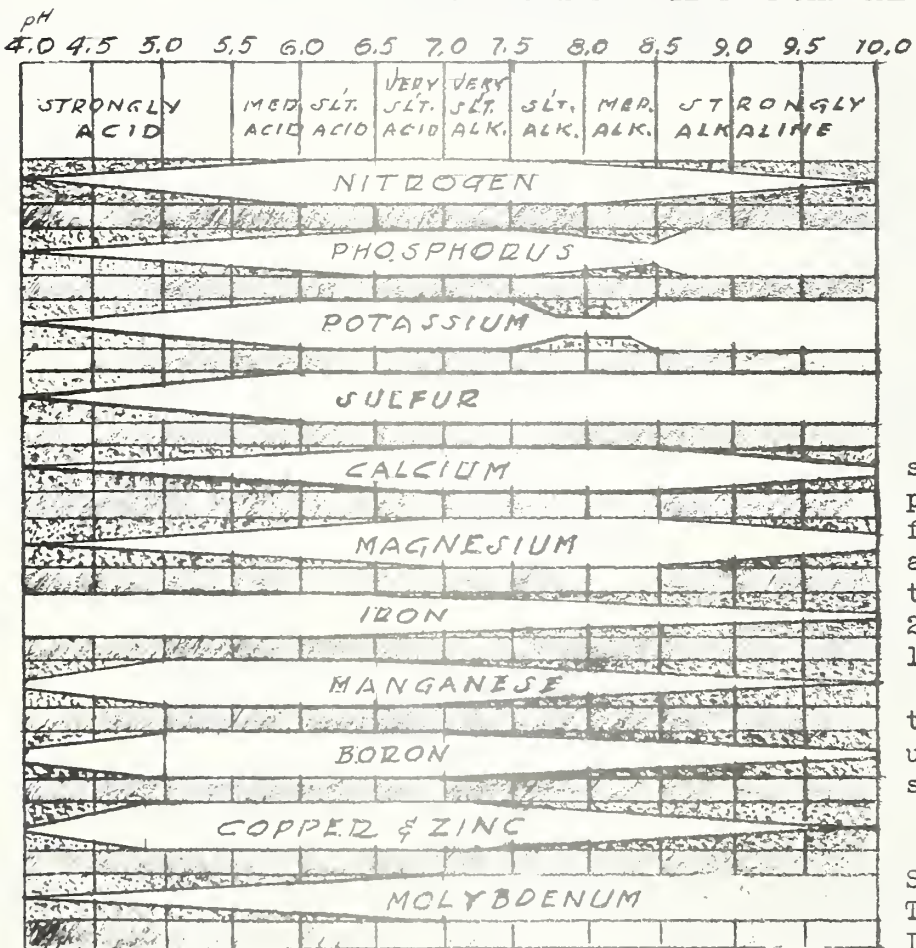 pH
4.0 4.5 5.0 5.5 6.0 6.5 7.0 7.5 8.0 8.5 9.0 9.5 10.0
STRONGLY ACID
MED. ACID
SLT. ACID
VERY SLT. ACID
VERY SLT. ALK.
SLT. ALK.
MED. ALK.
STRONGLY ALKALINE
NITROGEN
PHOSPHORUS
POTASSIUM
SULFUR
CALCIUM
MAGNESIUM
IRON
MANGANESE
BORON
COPPER & ZINC
MOLYBDENUM